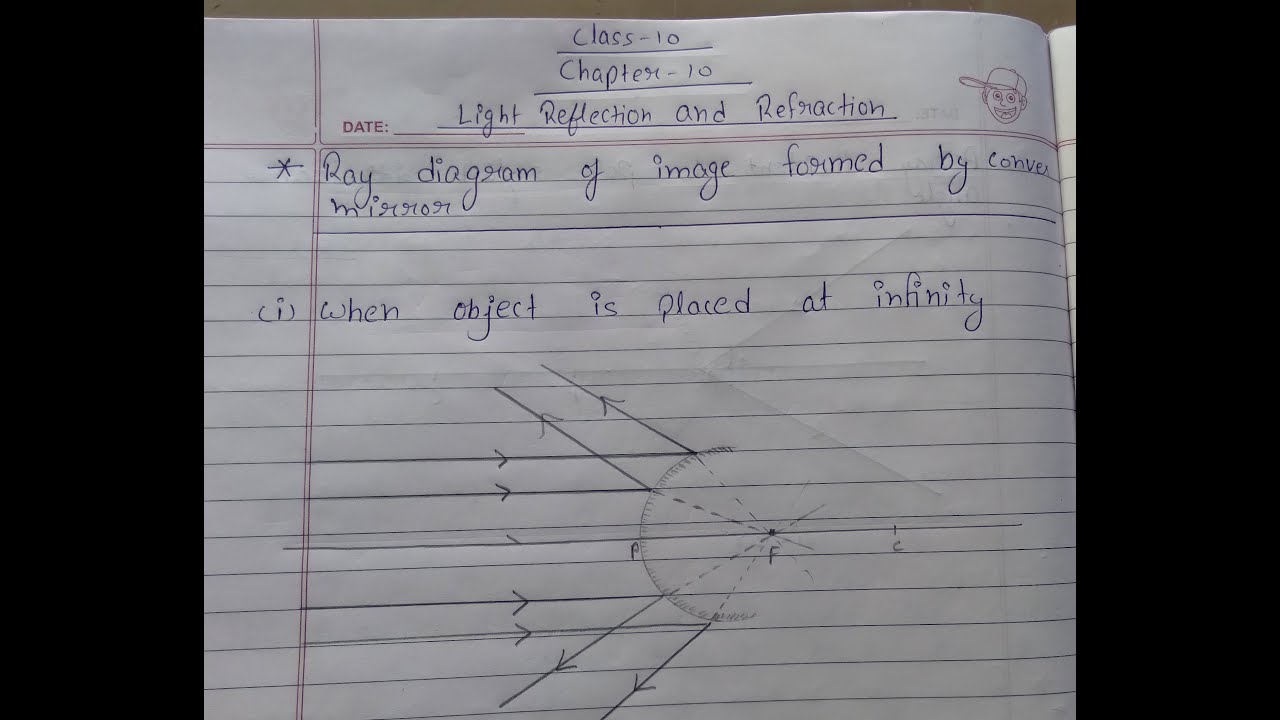 Class-10
Chapter-10
DATE: Light Reflection and Refraction
* Ray diagram of image formed by convex
mirror
(i) When object is placed at infinity
P
F
C